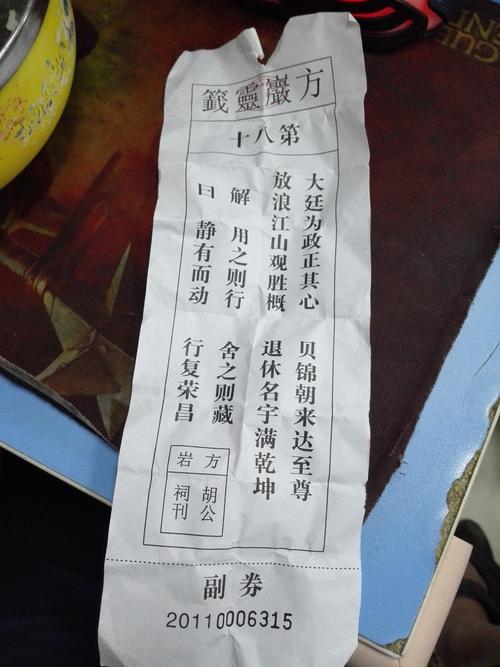 方巖靈籤
第八十
大廷为政正其心 贝锦朝来达至尊
放浪江山观胜概 退休名宇满乾坤
解 用之则行 舍之则藏
曰 静有而动 行复荣昌
方岩
胡公
祠刊
副券
20110006315